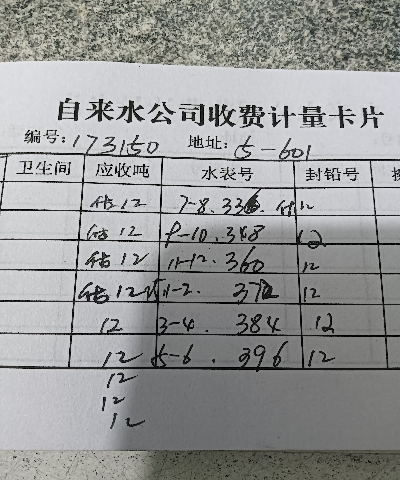 自来水公司收费计量卡片
编号:173150 地址:15-601
卫生间 应收吨 水表号 封铅号
估12 7-8. 336. 估12
估12 9-10. 348 12
估12 11-12. 360 12
估12 1-2. 372 12
12 3-4. 384 12
12 5-6. 396 12
12
12
12